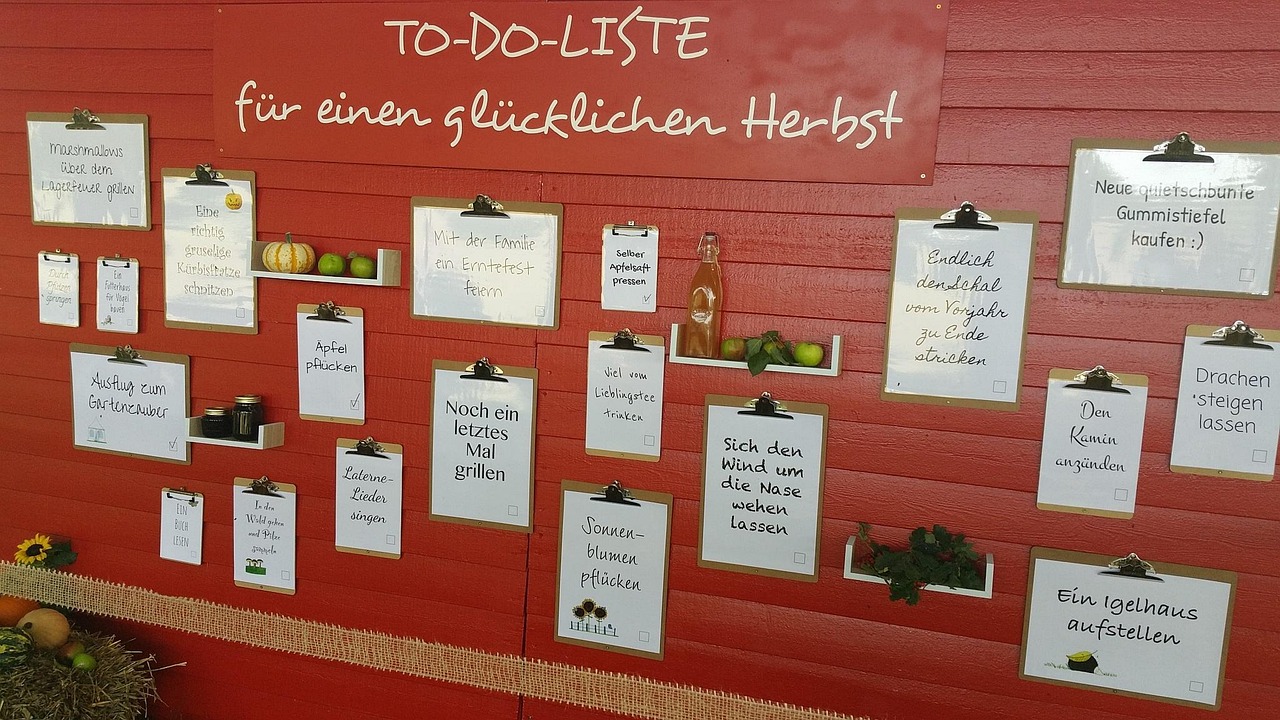 TO-DO-LISTE
für einen glücklichen Herbst
Marshmallows
über dem
Lagerfeuer grillen
Eine
richtig
gruselige
Kürbisfratze
schnitzen
Durch
Pfützen
springen
Ein
Futterhaus
für Vögel
bauen
Mit der Familie
ein Erntefest
feiern
Selber
Apfelsaft
pressen
Endlich
den Schal
vom Vorjahr
zu Ende
stricken
Neue quietschbunte
Gummistiefel
kaufen :)
Ausflug zum
Gartenzauber
Äpfel
pflücken
Noch ein
letztes
Mal
grillen
Viel vom
Lieblingstee
trinken
Sich den
Wind um
die Nase
wehen
lassen
Den
Kamin
anzünden
Drachen
steigen
lassen
EIN
BUCH
LESEN
In den
Wald gehen
und Pilze
sammeln
Laterne-
Lieder
singen
Sonnen-
blumen
pflücken
Ein Igelhaus
aufstellen